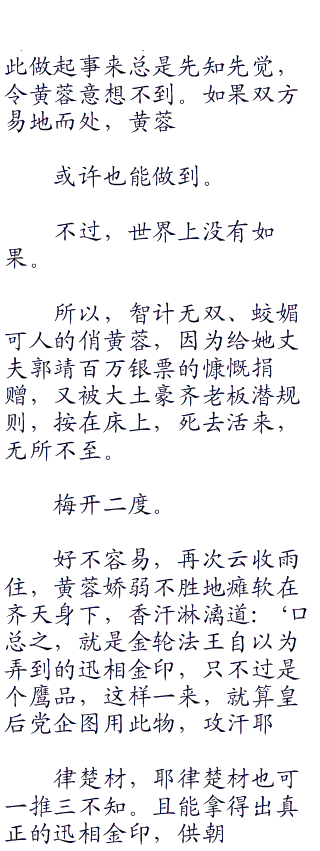 此做起事来总是先知先觉，
令黄蓉意想不到。如果双方
易地而处，黄蓉
或许也能做到。
不过，世界上没有如
果。
所以，智计无双、姣媚
可人的俏黄蓉，因为给她丈
夫郭靖百万银票的慷慨捐
赠，又被大土豪齐老板潜规
则，按在床上，死去活来，
无所不至。
梅开二度。
好不容易，再次云收雨
住，黄蓉娇弱不胜地瘫软在
齐天身下，香汗淋漓道：‘口
总之，就是金轮法王自以为
弄到的迅相金印，只不过是
个鹰品，这样一来，就算皇
后党企图用此物，攻汗耶
律楚材，耶律楚材也可
一推三不知。且能拿得出真
正的迅相金印，供朝